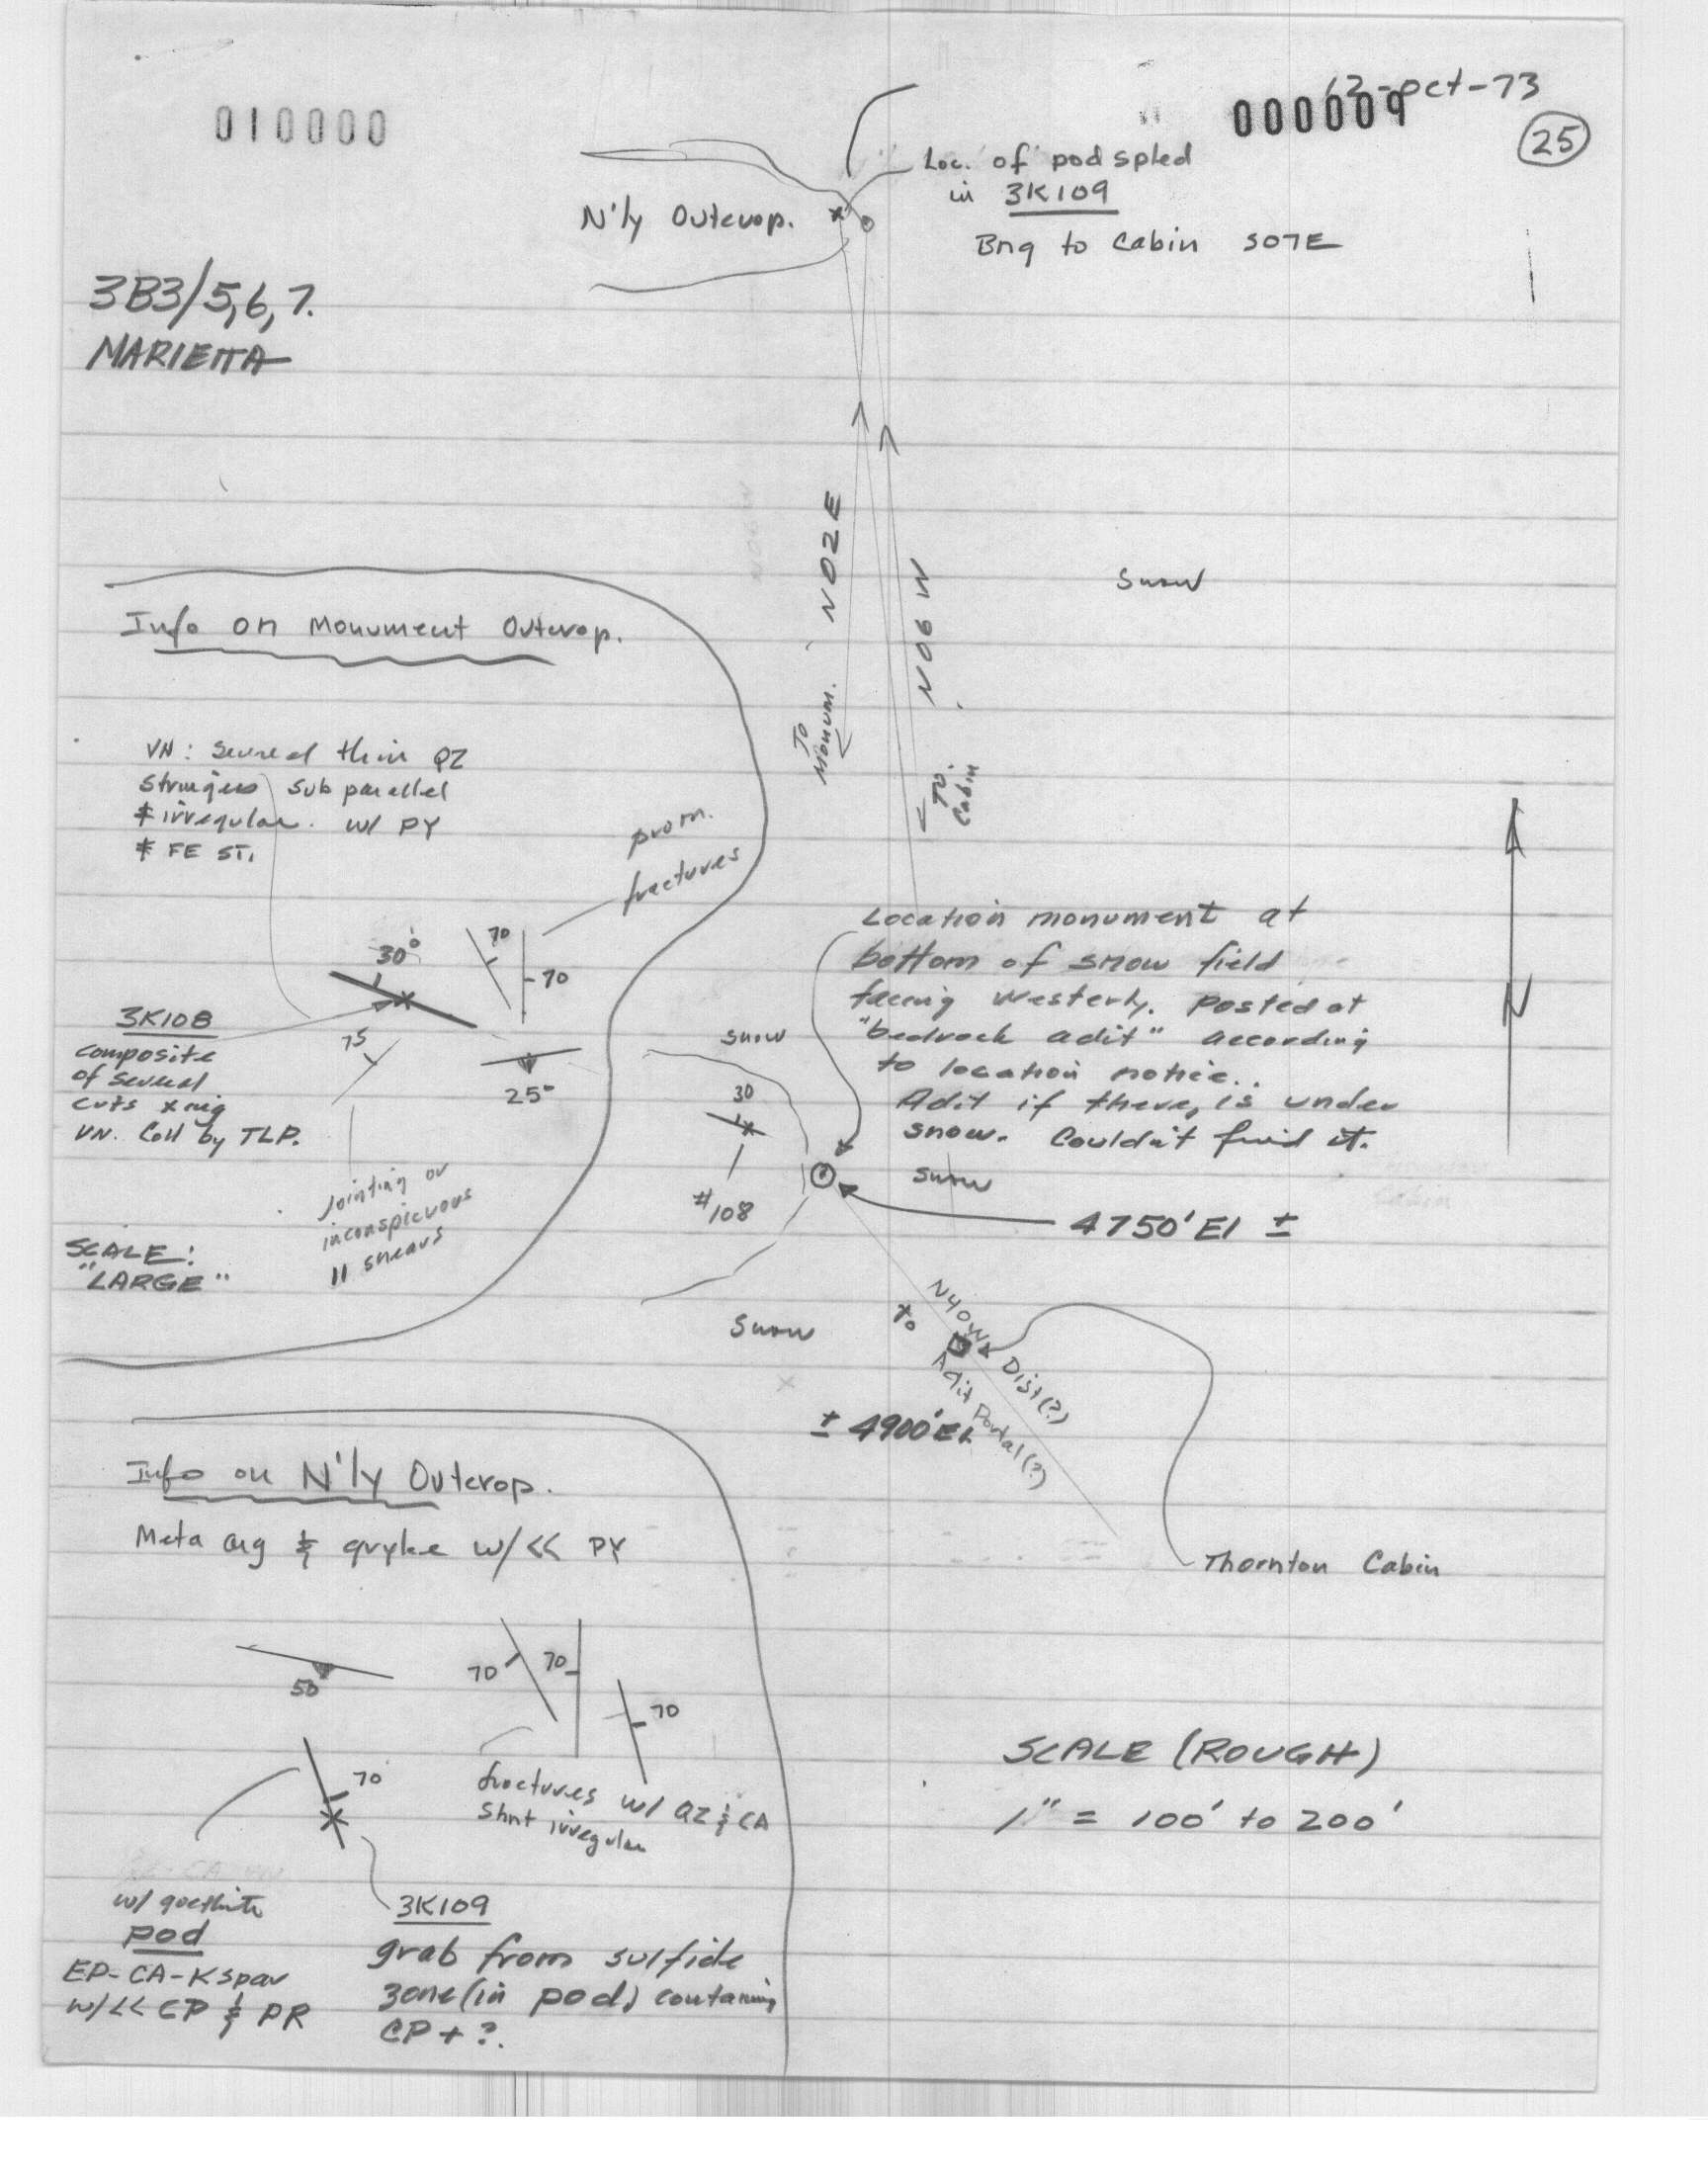 12-Oct-73
010000
000009
25
Loc. of pod spled
in 3K109
N'ly Outcrop.
Bng to Cabin S07E
3B3/5,6,7.
MARIETTA
N02E
To Monum.
N06W
To Cabin
Snow
Info on Monument Outcrop.
VN: Several thin QZ
stringers sub parallel
& irregular. w/ PY
& FE ST.
prom.
fractures
30°
70
70
3K108
composite
of several
cuts xing
VN. Coll by TLP.
75
25°
Jointing or
inconspicuous
|| shears
SCALE:
"LARGE"
Location monument at
bottom of snow field
facing Westerly. Posted at
"bedrock adit" according
to location notice..
Adit if there, is under
snow. Couldn't find it.
N
Snow
30
#108
Snow
4750' El ±
Snow
To
N40W
Dist(?)
Adit Portal(?)
± 4900' El
Thornton Cabin
Info on N'ly Outcrop.
Meta arg & gryke w/<< PY
50
70
70
70
70
fractures w/ QZ & CA
Shnt irregular
w/ goethite
pod
EP-CA-Kspar
w/<< CP & PR
3K109
grab from sulfide
zone (in pod) containing
CP + ?.
SCALE (ROUGH)
1" = 100' to 200'